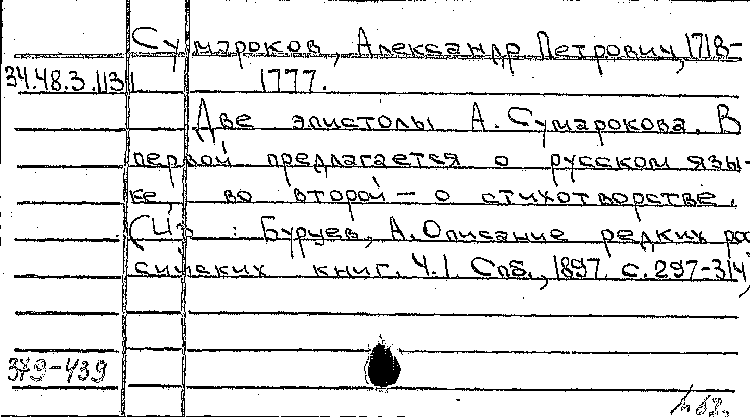 Сумароков, Александр Петрович, 1718-
34.48.3.113 1777.
Две эпистолы А. Сумарокова. В
первой предлагается о русском язы-
ке, во второй – о стихотворстве.
(Из: Бурцев, А. Описание редких рос
сийских книг. Ч.1. Спб., 1897. с. 297-314
379-439